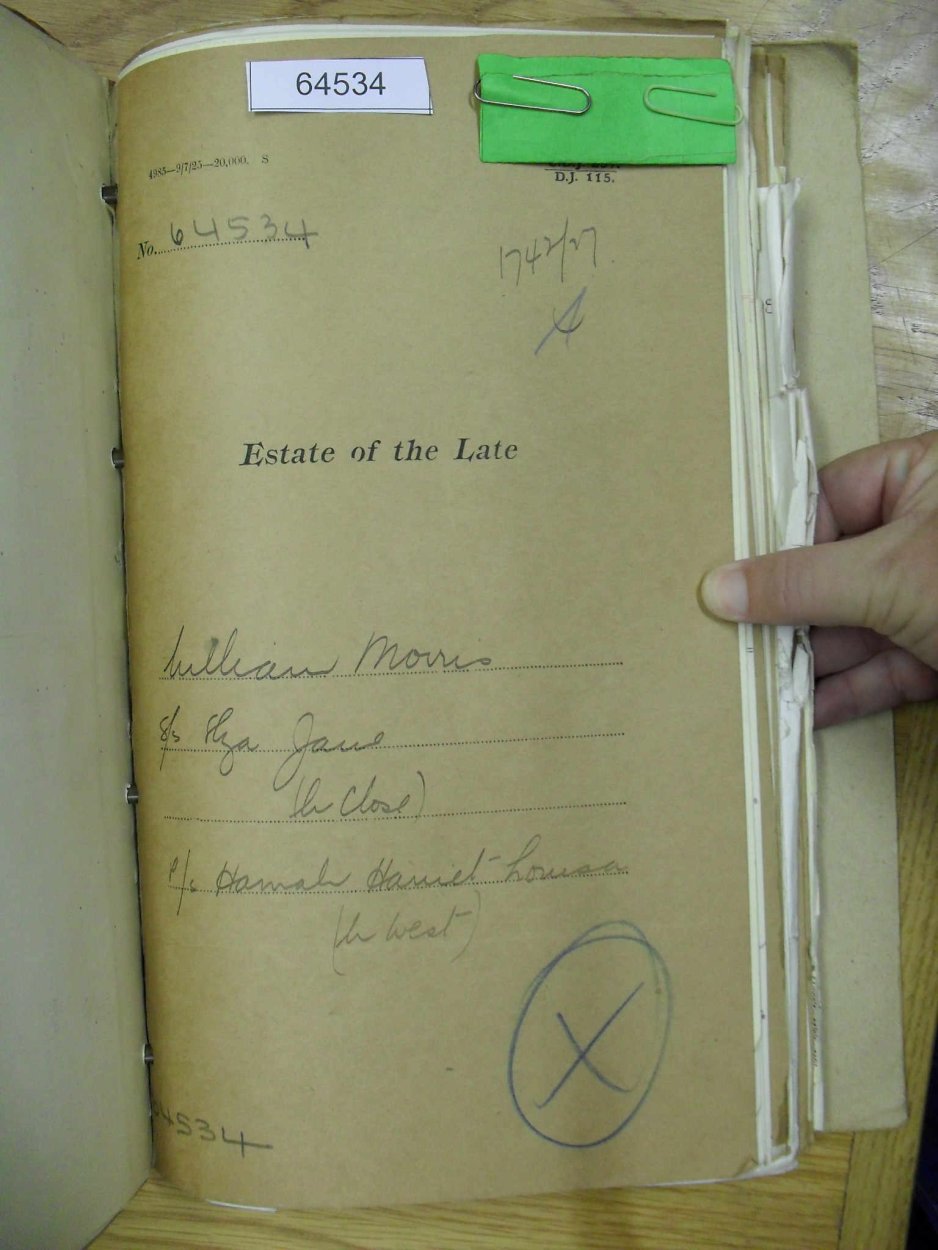 64534
4985—9/7/25—20,000. S
D.J. 115.
No. 64534
1742/27
Estate of the Late
William Morris
s/s Elza Jane
(b Close)
p/s Hannah Harriet Louisa
(b West)
X
64534